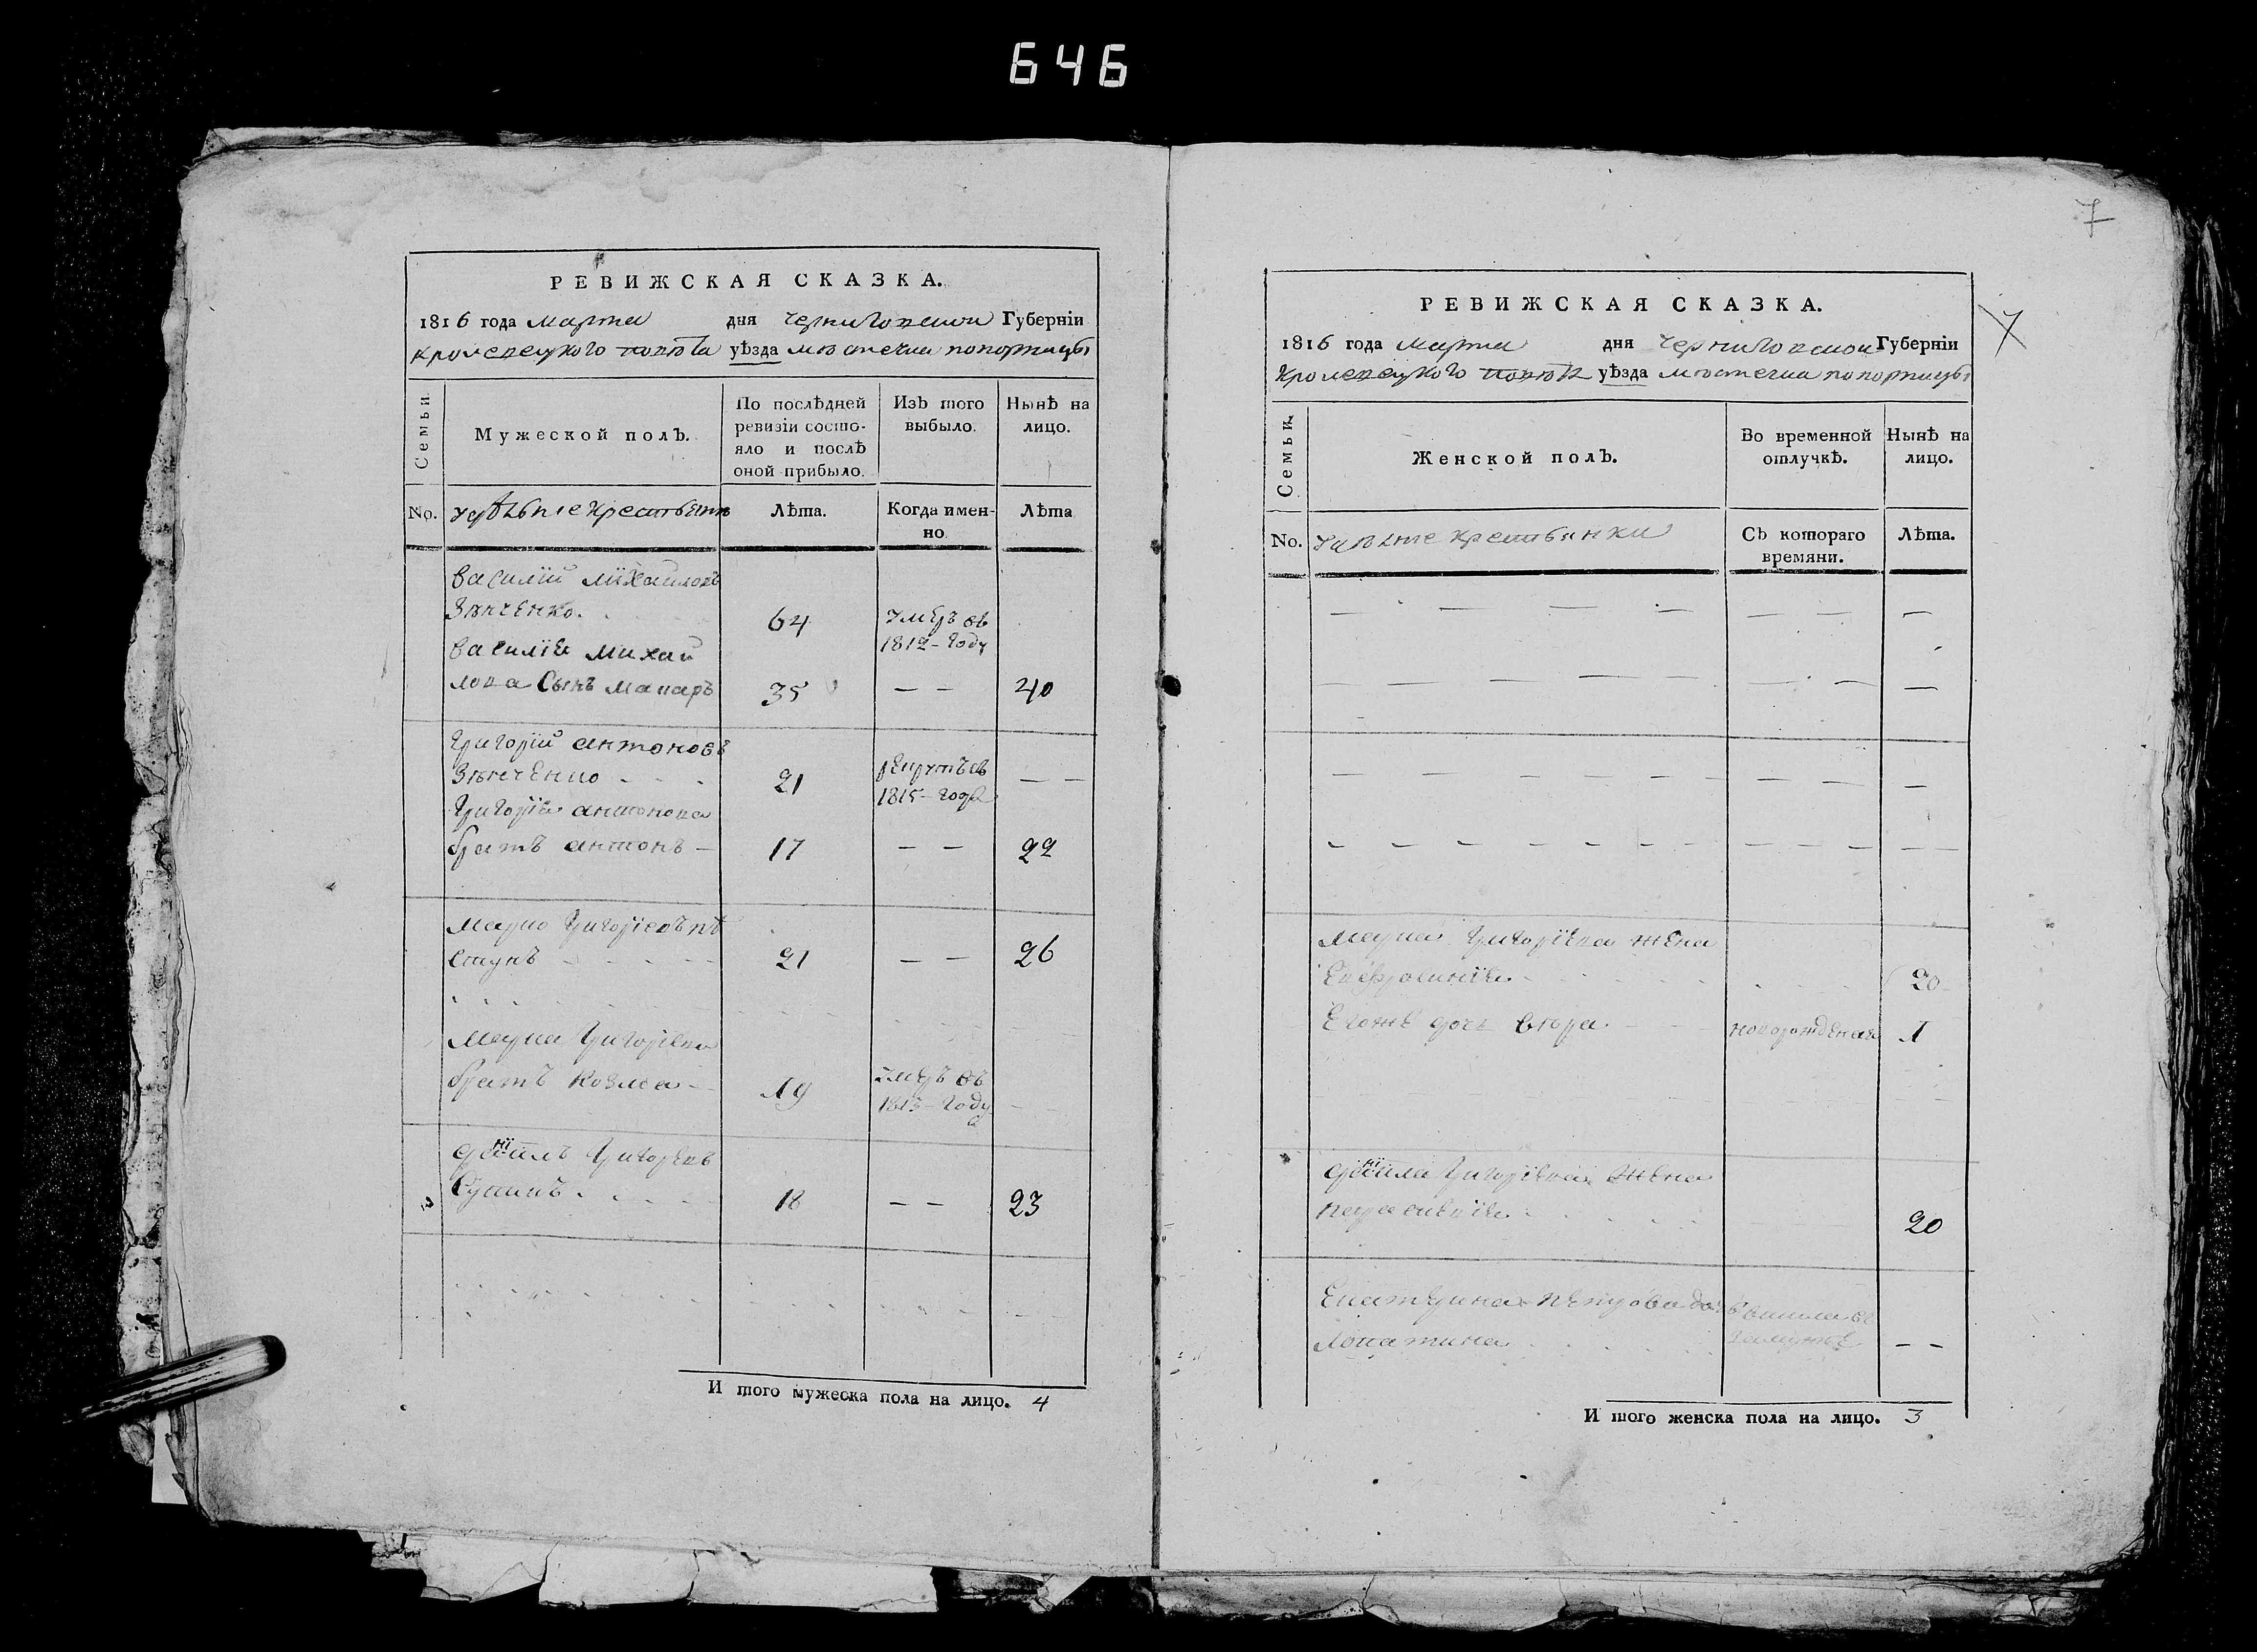 646
РЕВИЖСКАЯ СКАЗКА.
1816 года марта дня Черниговской Губерніи
Кролевецкого повѣта уѣзда мѣстечка Понорницы
Семьи
Мужеской полъ.
По послѣдней ревизіи состо-
яло и послѣ
оной прибыло.
Изъ того
выбыло.
Нынѣ на
лицо.
No.
крестьяне
Лѣта.
Когда имен-
но.
Лѣта
Василій Михайловъ
64
умеръ въ
1812 - году
Василія Михай
лова Сынъ Макаръ
35 — — 40
Григорій Антоновъ
21
рекрутъ въ
1815 - годѣ
— —
Григорія Антонова
братъ Антонъ —
17 — — 22
Марко Григорьевъ
21 — — 26
Марка Григорьева
братъ Козма —
19
умеръ въ
1813 - году
Даніилъ Григорьевъ
18 — — 23
И того мужеска пола на лицо. 4
7
РЕВИЖСКАЯ СКАЗКА.
7
1816 года Марта дня Черниговской Губерніи
Кролевецкого повѣта уѣзда мѣстечка Понорницы
Семьи.
Женской полъ.
Во временной
отлучкѣ.
Нынѣ на
лицо.
No.
крестьянки
Съ котораго
времяни.
Лѣта.
Марка Григорьева жена
Евфросинія
20
Егожъ дочь
новорожденая
1
Даніила Григорьева жена
Параскевія
20
Екатерина Петрова дочь
вишла въ
Лопатина
замужъ
— —
И того женска пола на лицо. 3